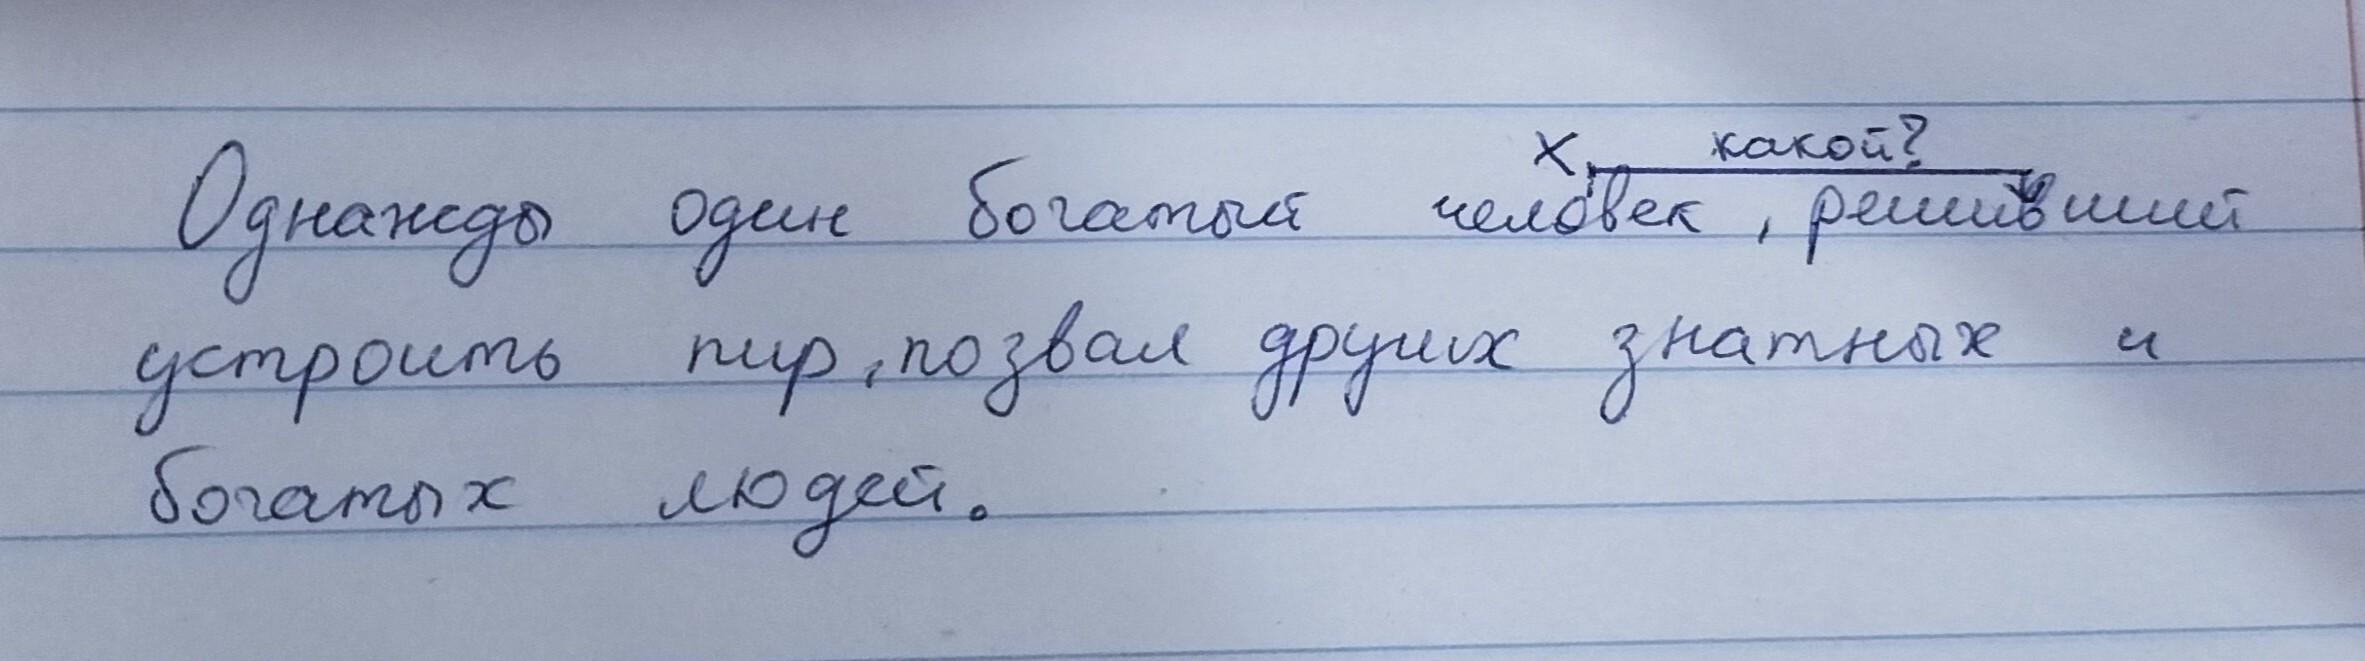 х какой?
Однажды один богатый человек, решивший
устроить пир, позвал других знатных и
богатых людей.